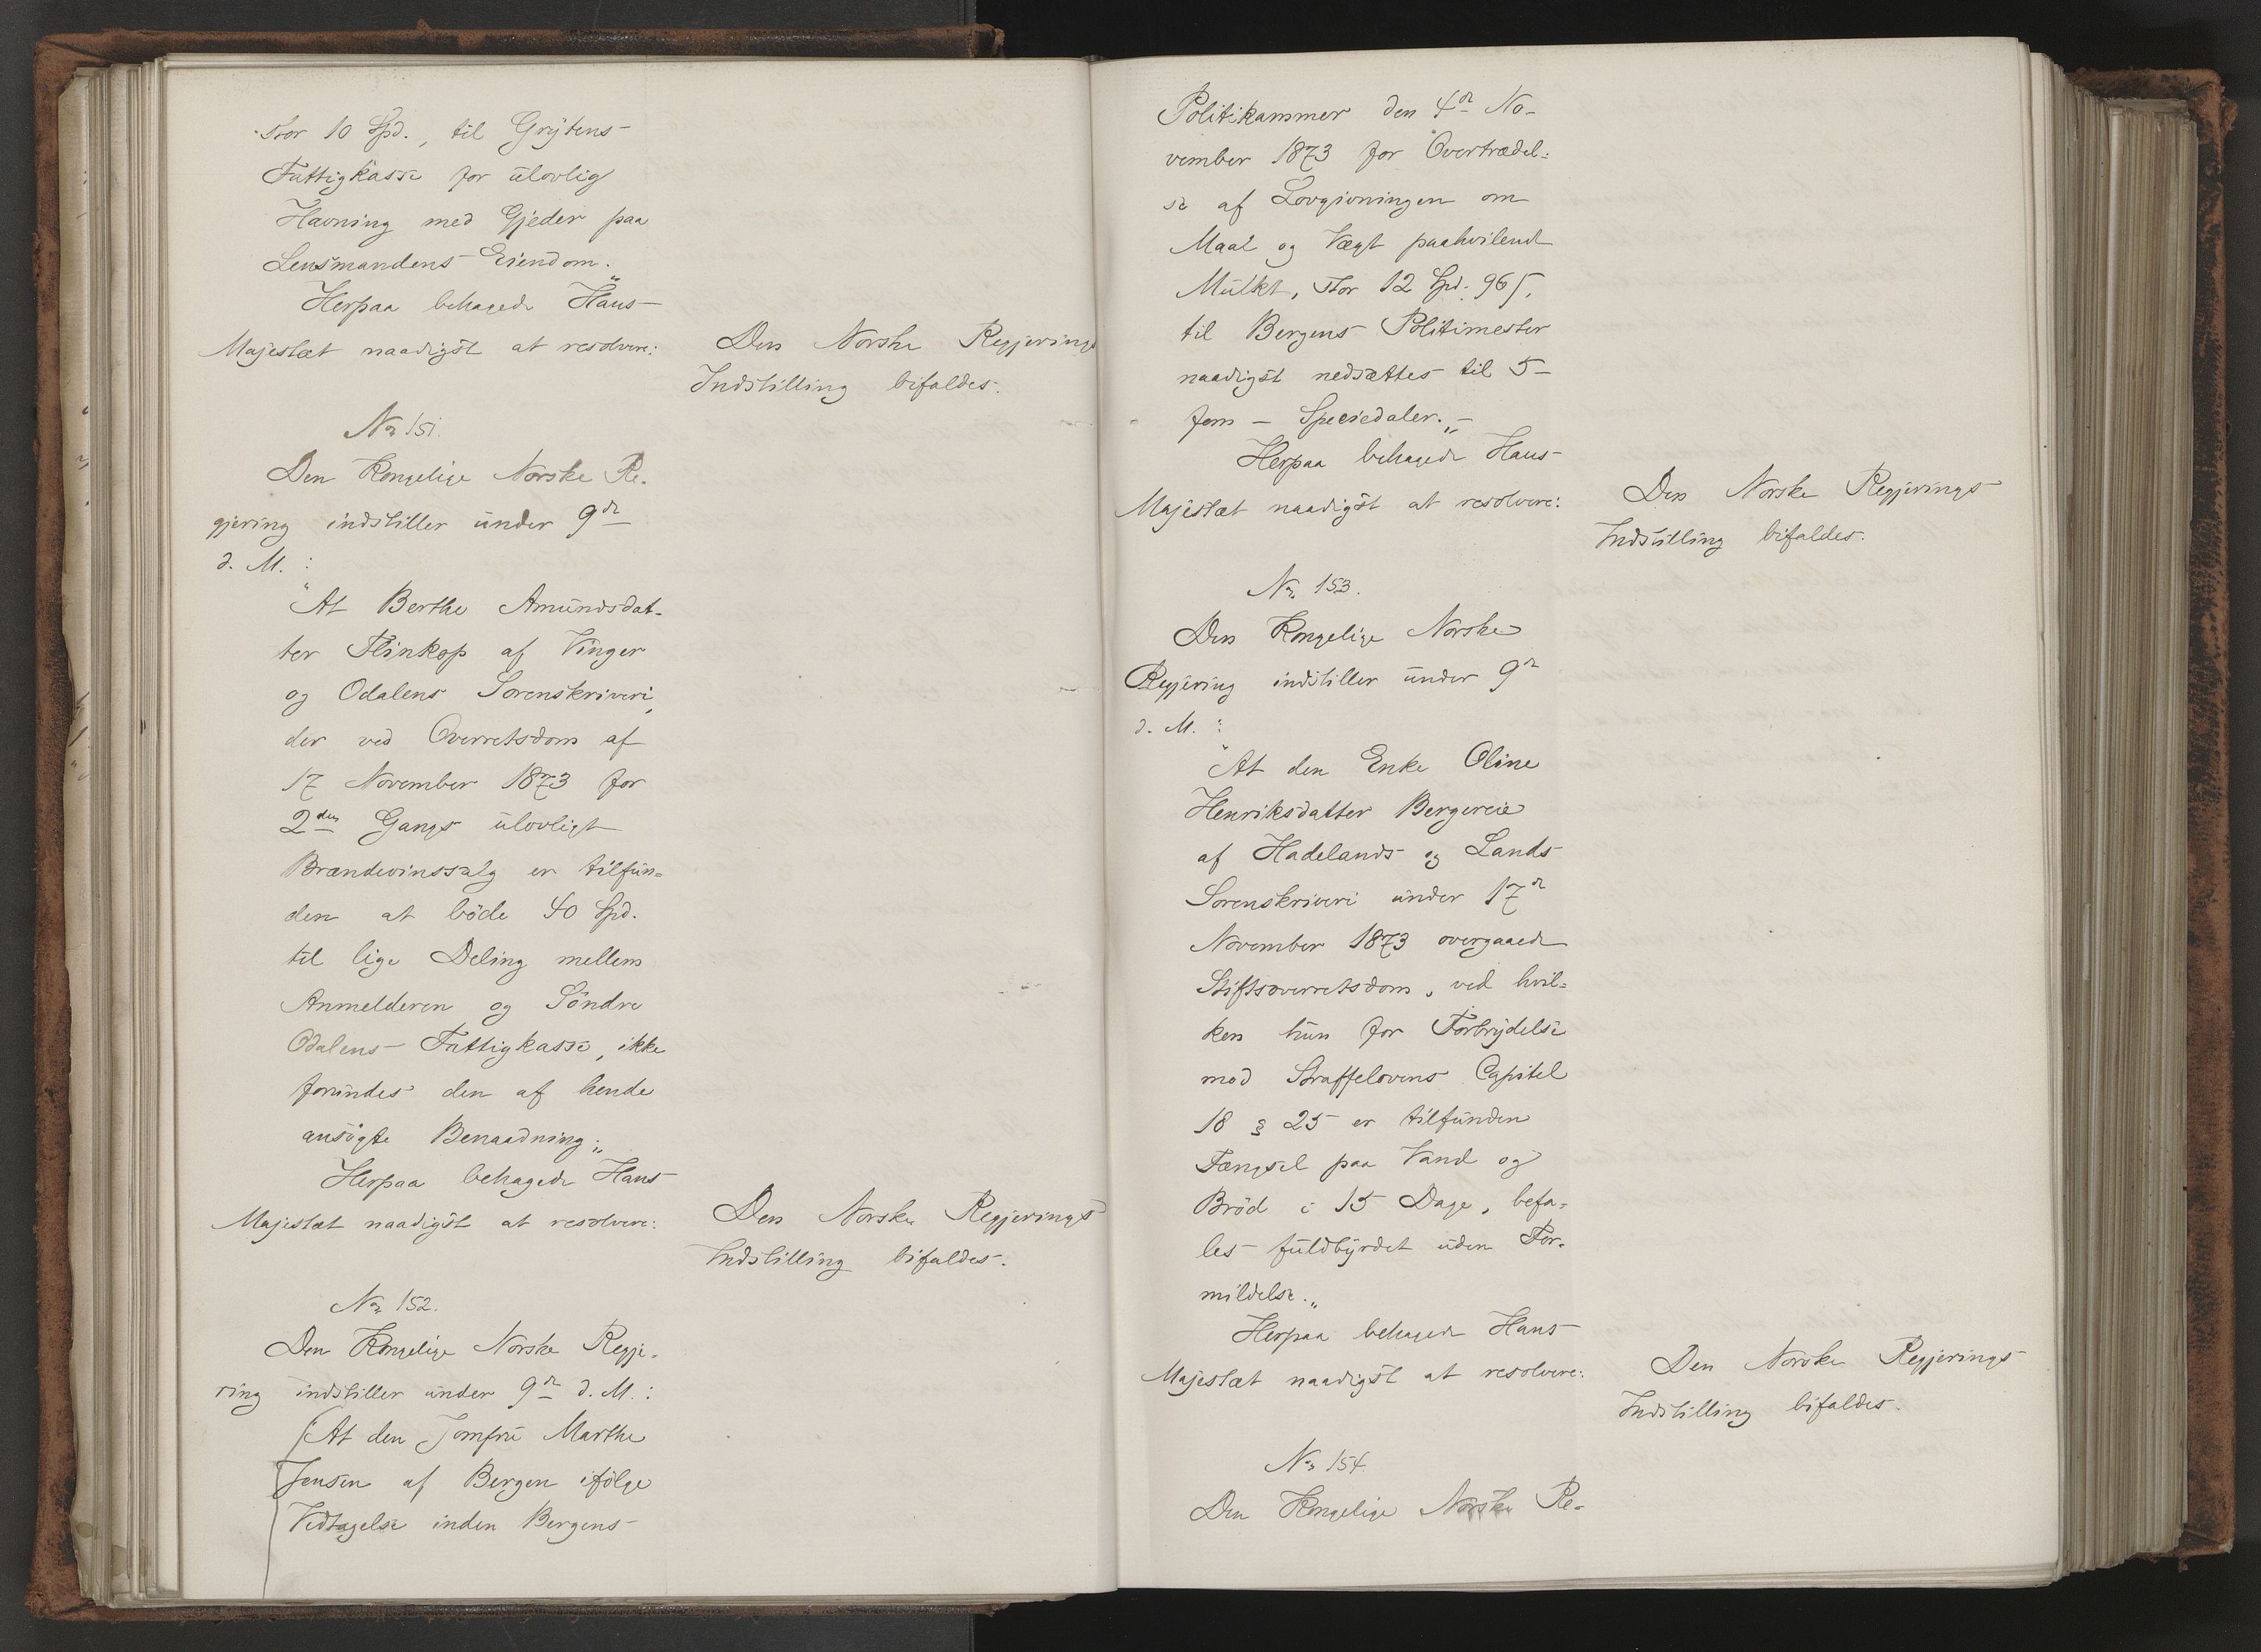 stor 10 Spd., til Grytens
Fattigkasse for ulovlig
Havning med Gjeder paa
Lensmandens Eiendom.„
Herpaa behagede Hans
Majestæt naadigst at resolvere:
Den Norske Regjerings
Indstilling bifaldes.
No 151.
Den Kongelige Norske Re-
gjering indstiller under 9de
d. M. :
"At Berthe Amundsdat-
ter Flinkop af Vinger
og Odalens Sorenskriveri,
der ved Overretsdom af
17 November 1873 for
2den Gangs ulovligt
Brændevinssalg er tilfun-
den at böde 40 Spd.
til lige Deling mellem
Anmelderen og Söndre
Odalens Fattigkasse, ikke
forundes den af hende
ansögte Benaadning.„
Herpaa behagede Hans
Majestæt naadigst at resolvere:
Den Norske Regjerings
Indstilling bifaldes.
No 152.
Den Kongelige Norske Regje-
ring indstiller under 9de d. M. :
"At den Jomfru Marthe
Jensen af Bergen ifölge
Vedtagelse inden Bergens
Politikammer den 4de No-
vember 1873 for Overtrædel-
se af Lovgivningen om
Maal og Vægt paahvilende
Mulkt, stor 12 Spd. 96 s,
til Bergens Politimester
naadigst nedsættes til 5
fem – Speciedaler.„ –
Herpaa behagede Hans
Majestæt naadigst at resolvere:
Den Norske Regjerings
Indstilling bifaldes.
No 153.
Den Kongelige Norske
Regjering indstiller under 9de
d. M. :
"At den Enke Oline
Henriksdatter Bergereie
af Hadelands og Lands
Sorenskriveri under 17de
November 1873 overgaaede
Stiftsoverretsdom, ved hvil-
ken hun for Forbrydelse
mod Straffelovens Capitel
18 § 25 er tilfunden
Fængsel paa Vand og
Bröd i 15 Dage, befa-
les fuldbyrdet uden For-
mildelse.„
Herpaa behagede Hans
Majestæt naadigst at resolvere:
Den Norske Regjerings
Indstilling bifaldes.
No 154.
Den Kongelige Norske Re-